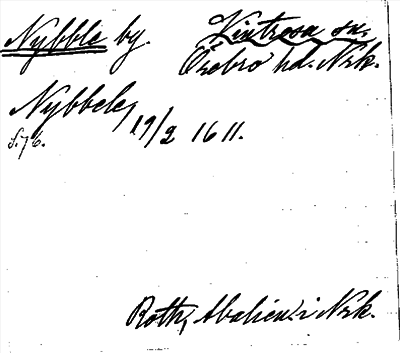 Nybble by. Vintrosa sn.
Örebro hd. Nrk.
Nybbele, 19/2 1611.
S. 76.
Roth, Abalien. i Nrk.